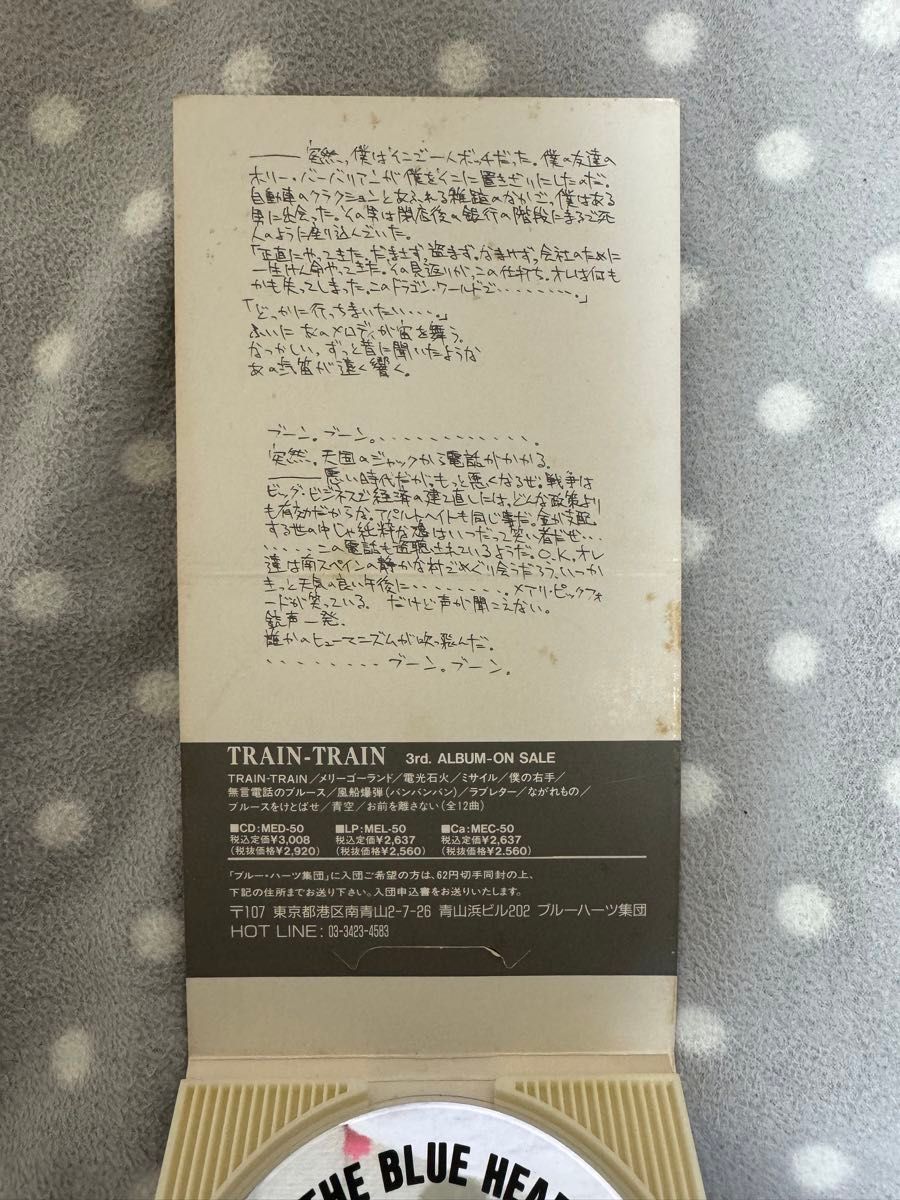 ――突然、僕はそこで一人ボッチだった。僕の友達の
ホリー・バーバリアンが僕をそこに置きざりにしたのだ。
自動車のクラクションとあふれる雑踏のなかで、僕はある
男に出会った。その男は閉店後の銀行の階段にまるで死
人のように座り込んでいた。
「正直にやってきた。だまさず、盗まず、なまけず、会社のために
一生けん命やってきた。その見返りが、この仕打ち。オレは何も
かも失ってしまった。このドラゴン・ワールドで・・・・・・・・。」
「どっかに行っちまいたい・・・・。」
ふいにあのメロディが宙を舞う。
なつかしい、ずっと昔に聞いたような
あの汽笛が遠く響く。
ブーン。ブーン。・・・・・・・・・・・・・。
突然、天国のジャックから電話がかかる。
――悪い時代だが、もっと悪くなるぜ。戦争は
ビッグ・ビジネスで経済の建て直しには、どんな政策より
も有効だからな。アパルトヘイトも同じ事だ。金が支配
する世の中じゃ純粋な魂はいつだって笑い者だぜ・・・
・・・・・・この電話も盗聴されているようだ。O.K.オレ
達は南スペインの静かな村でめぐり会うだろう。いつか
きっと天気の良い午後に・・・・・・・・・。メアリ・ピックフォ
ードが笑っている。 だけど声が聞こえない。
銃声一発、
誰かのヒューマニズムが吹っ飛んだ。
・・・・・・・・ブーン。ブーン。
TRAIN-TRAIN 3rd. ALBUM-ON SALE
TRAIN-TRAIN／メリーゴーランド／電光石火／ミサイル／僕の右手／
無言電話のブルース／風船爆弾(バンバンバン)／ラブレター／ながれもの／
ブルースをけとばせ／青空／お前を離さない(全12曲)
■CD:MED-50 ■LP:MEL-50 ■Ca:MEC-50
税込定価¥3,008 税込定価¥2,637 税込定価¥2,637
(税抜価格¥2,920) (税抜価格¥2,560) (税抜価格¥2.560)
「ブルー・ハーツ集団」に入団ご希望の方は、62円切手同封の上、
下記の住所までお送り下さい。入団申込書をお送りいたします。
〒107 東京都港区南青山2-7-26 青山浜ビル202 ブルーハーツ集団
HOT LINE: 03-3423-4583
THE BLUE HEA